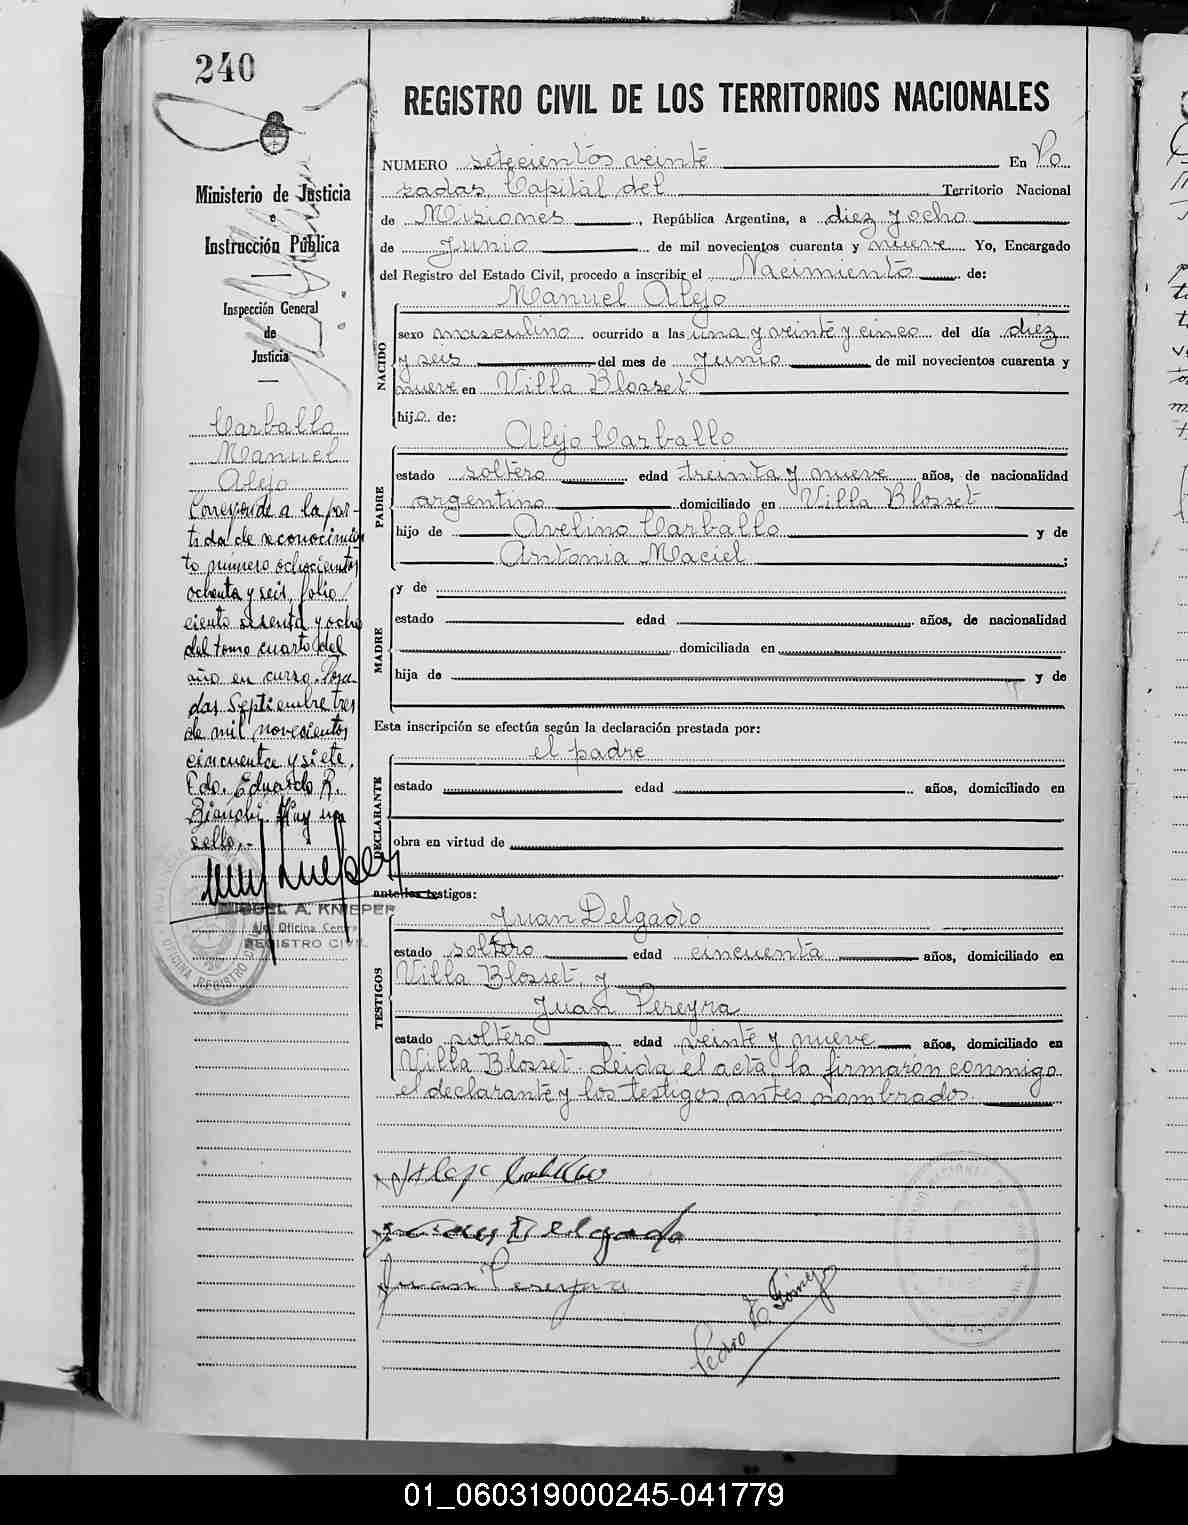 240
REGISTRO CIVIL DE LOS TERRITORIOS NACIONALES
Ministerio de Justicia
e
Instrucción Pública
Inspección General
de
Justicia
Carballo
Manuel
Alejo
Corresponde a la par-
tida de reconocimien
to número ochocientos
ochenta y seis, folio
ciento sesenta y ocho
del tomo cuarto del
año en curso. Posa-
das, Septiembre tres
de mil novecientos
cincuenta y siete.
Fdo. Eduardo R.
Bianchi. Hay un
sello.-
MIGUEL A. KNIEPER
Oficina Central
REGISTRO CIVIL
NUMERO setecientos veinte En Po
sadas Capital del Territorio Nacional
de Misiones, República Argentina, a diez y ocho
de Junio de mil novecientos cuarenta y nueve Yo, Encargado
del Registro del Estado Civil, procedo a inscribir el Nacimiento de:
NACIDO
Manuel Alejo
sexo masculino ocurrido a las una y veinte y cinco del día diez
y seis del mes de Junio de mil novecientos cuarenta y
nueve en Villa Blosset
hijo de:
PADRE
Alejo Carballo
estado soltero edad treinta y nueve años, de nacionalidad
argentino domiciliado en Villa Blosset
hijo de Avelino Carballo y de
Antonia Maciel;
MADRE
y de
estado edad años, de nacionalidad
domiciliada en
hija de y de
Esta inscripción se efectúa según la declaración prestada por:
DECLARANTE
el padre
estado edad años, domiciliado en
obra en virtud de
ante los testigos:
TESTIGOS
Juan Delgado
estado soltero edad cincuenta años, domiciliado en
Villa Blosset, y
Juan Pereyra
estado soltero edad veinte y nueve años, domiciliado en
Villa Blosset. Leida el acta, la firmaron conmigo
el declarante y los testigos antes nombrados.
Alejo Carballo
Juan Delgado
Juan Pereyra
Pedro E. Gómez
01_060319000245-041779